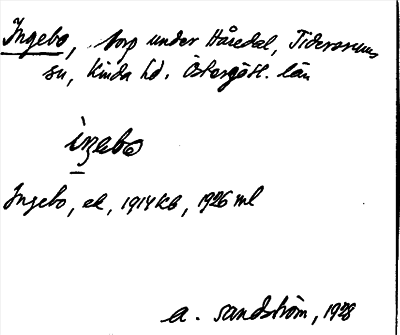 Ingebo, torp under Håredal, Tidersrums
sn, Kinda hd. Östergötl. län
ìŋebo
Ingebo, el, 1914 kb, 1926 ml
A. Sandström, 1928